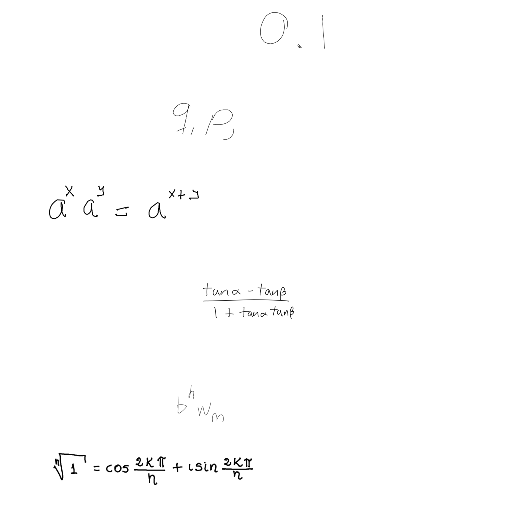 0.1
q, β
a^x a^y = a^{x+y}
\frac{tan α - tan β}{1 + tan α tan β}
b^n w_m
\sqrt[n]{1} = cos \frac{2kπ}{n} + i sin \frac{2kπ}{n}